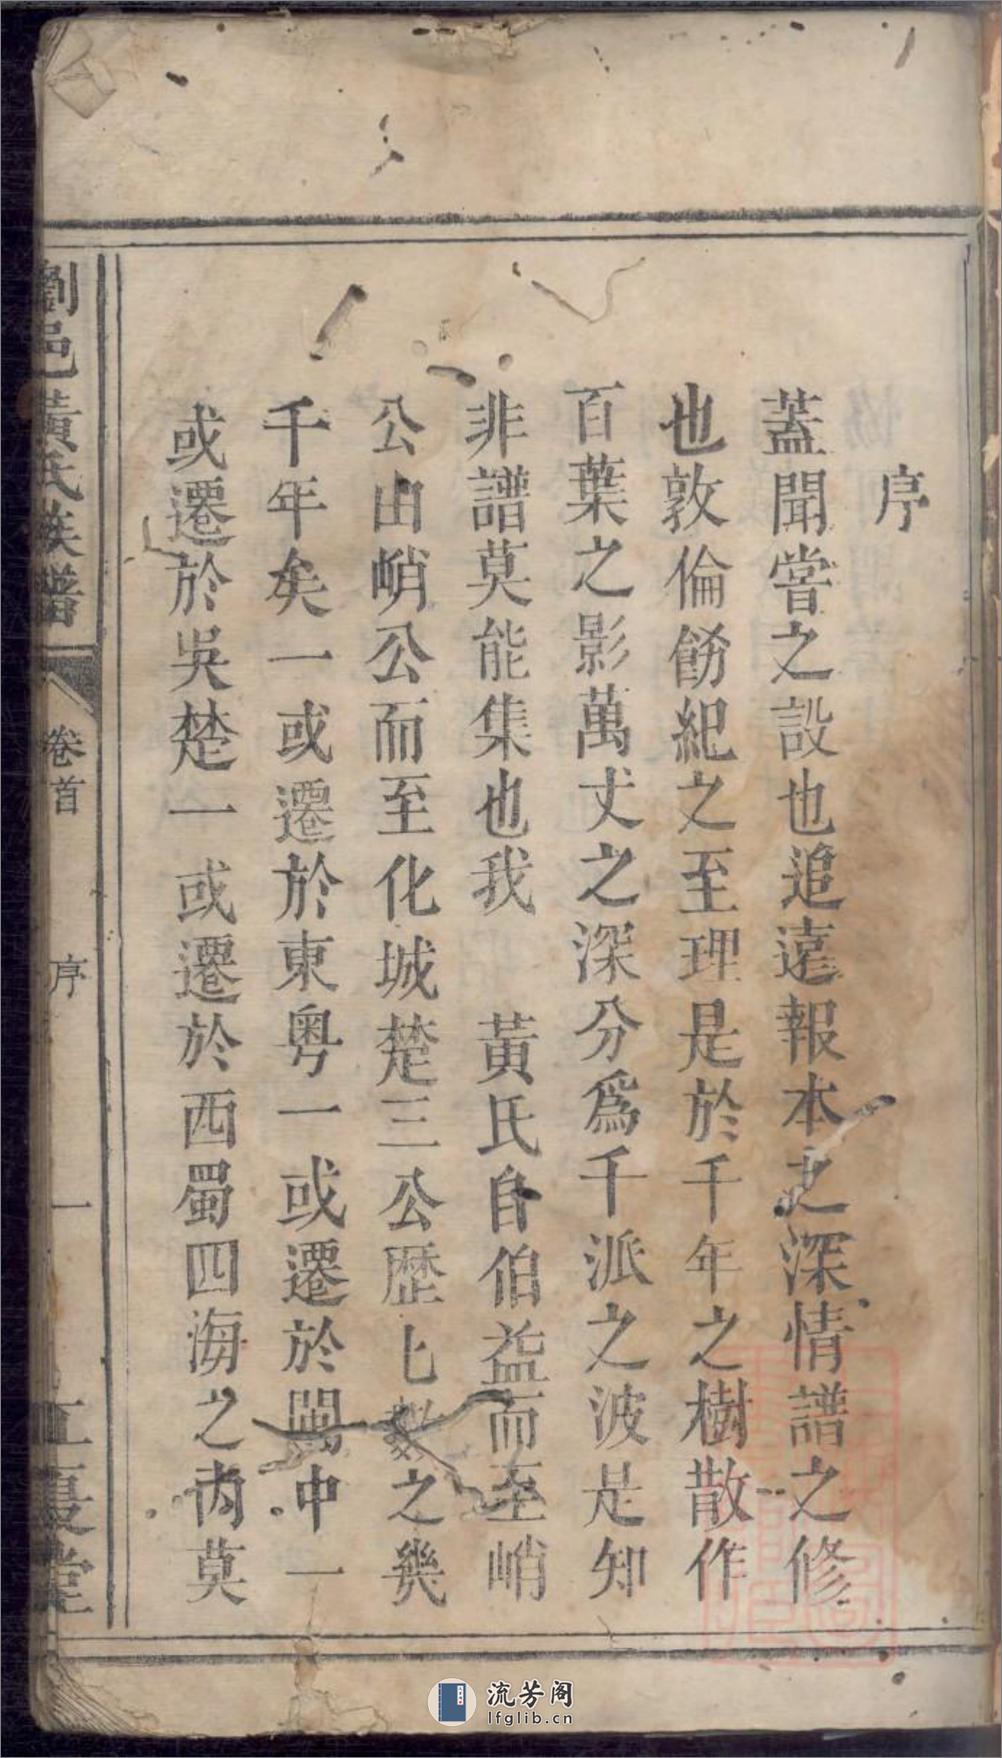 序
蓋聞嘗之設也追遠報本之深情譜之修
也敦倫飭紀之至理是於千年之樹散作
百葉之影萬丈之深分爲千派之波是知
非譜莫能集也我　黃氏自伯益而至峭
公由峭公而至化城楚三公歷七數之幾
千年矣一或遷於東粵一或遷於閩中一
或遷於吳楚一或遷於西蜀四海之內莫
瀏邑黃氏族譜
卷首
序
一
流芳阁
lfglib.cn